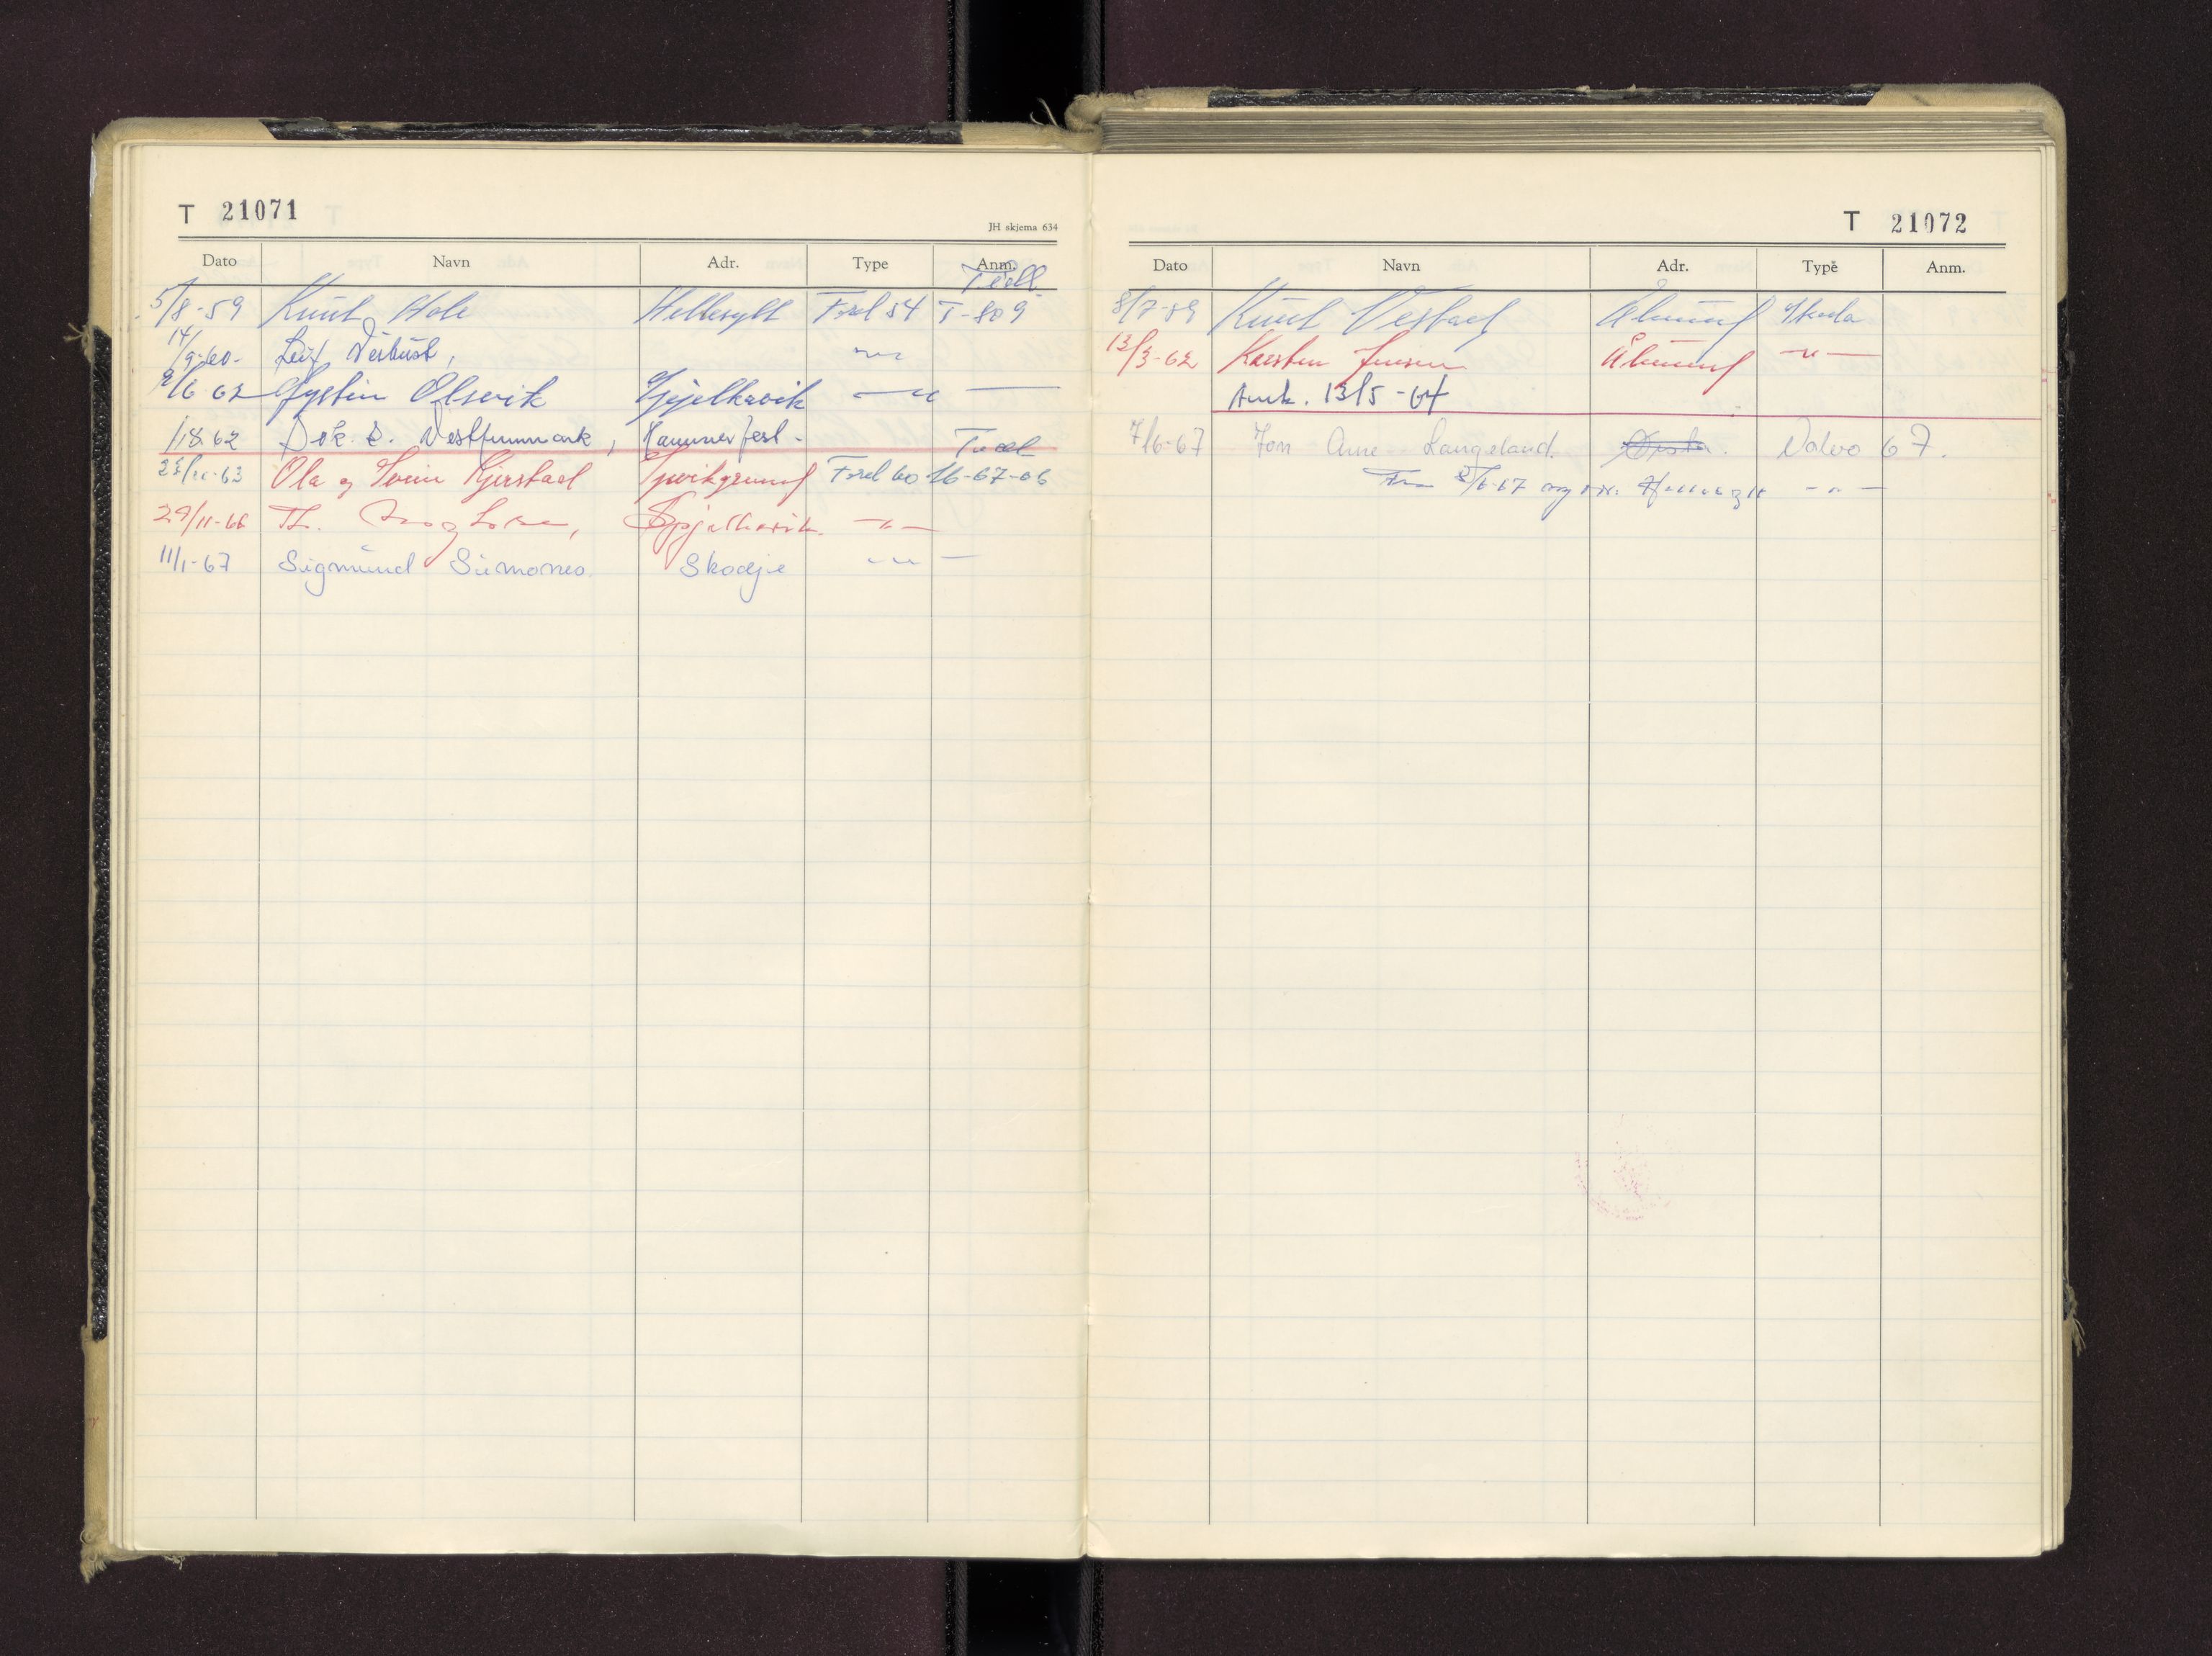 T 21071
JH skjema 634
Dato Navn Adr. Type Anm.
5/8-59 Knut Hole Hellesylt Ford 54 T-809
14/9-60. Leif Verbust,
9/6 62 Øystein Olsvik Spjelkavik — " —
/18.62 Dok. t. Vestfinnmark, Hammerfest -
Ola og Svein Gjerstad Ford 60 16-67-06
29/11-66 Th. Spjelkavik. — " —
11/1-67 Sigmund Simones Skodje — " —
T 21072
Dato Navn Adr. Type Anm.
8/7-59 Knut Vestad Ålesund Skoda
13/3-62 Karsten Jensen Ålesund — " —
Avsk. 13/5-64
7/6-67 Jon Arne Langeland. Ørsta. Volvo 67.
Fra /6-67 — " —